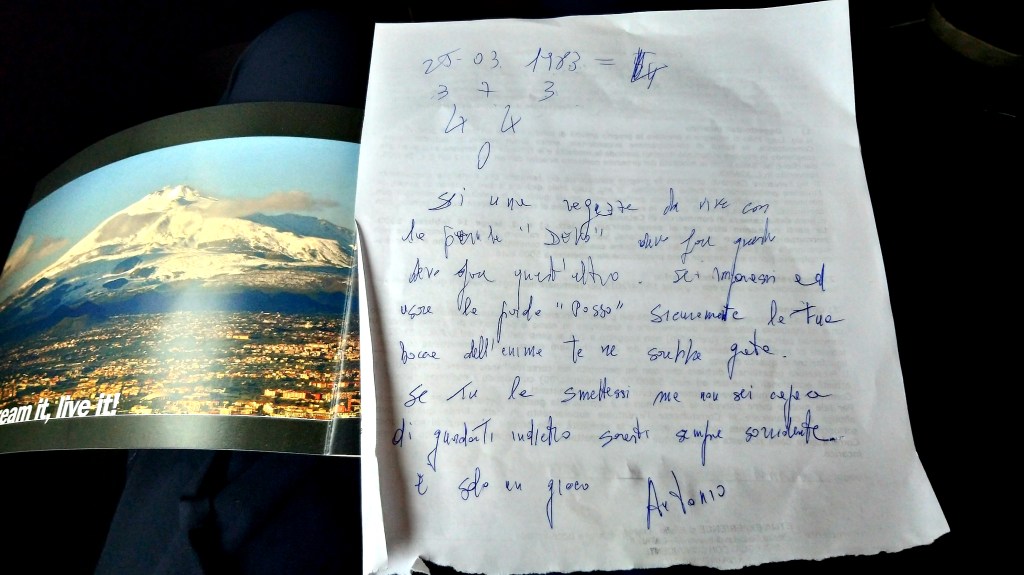 25-03 1983 = 4
3 7 3
4 4
0
Sei una ragazza da vive con
la parola "DEVO" devo fare questo
devo fare quest'altro. Se imparassi ad
usare la parola "Posso" sicuramente la tua
bocca dell'anima te ne sarebbe grata.
Se tu la smettessi ma non sei capace
di guardarti indietro saresti sempre sorridente.
È solo un gioco Antonio
eam it, live it!